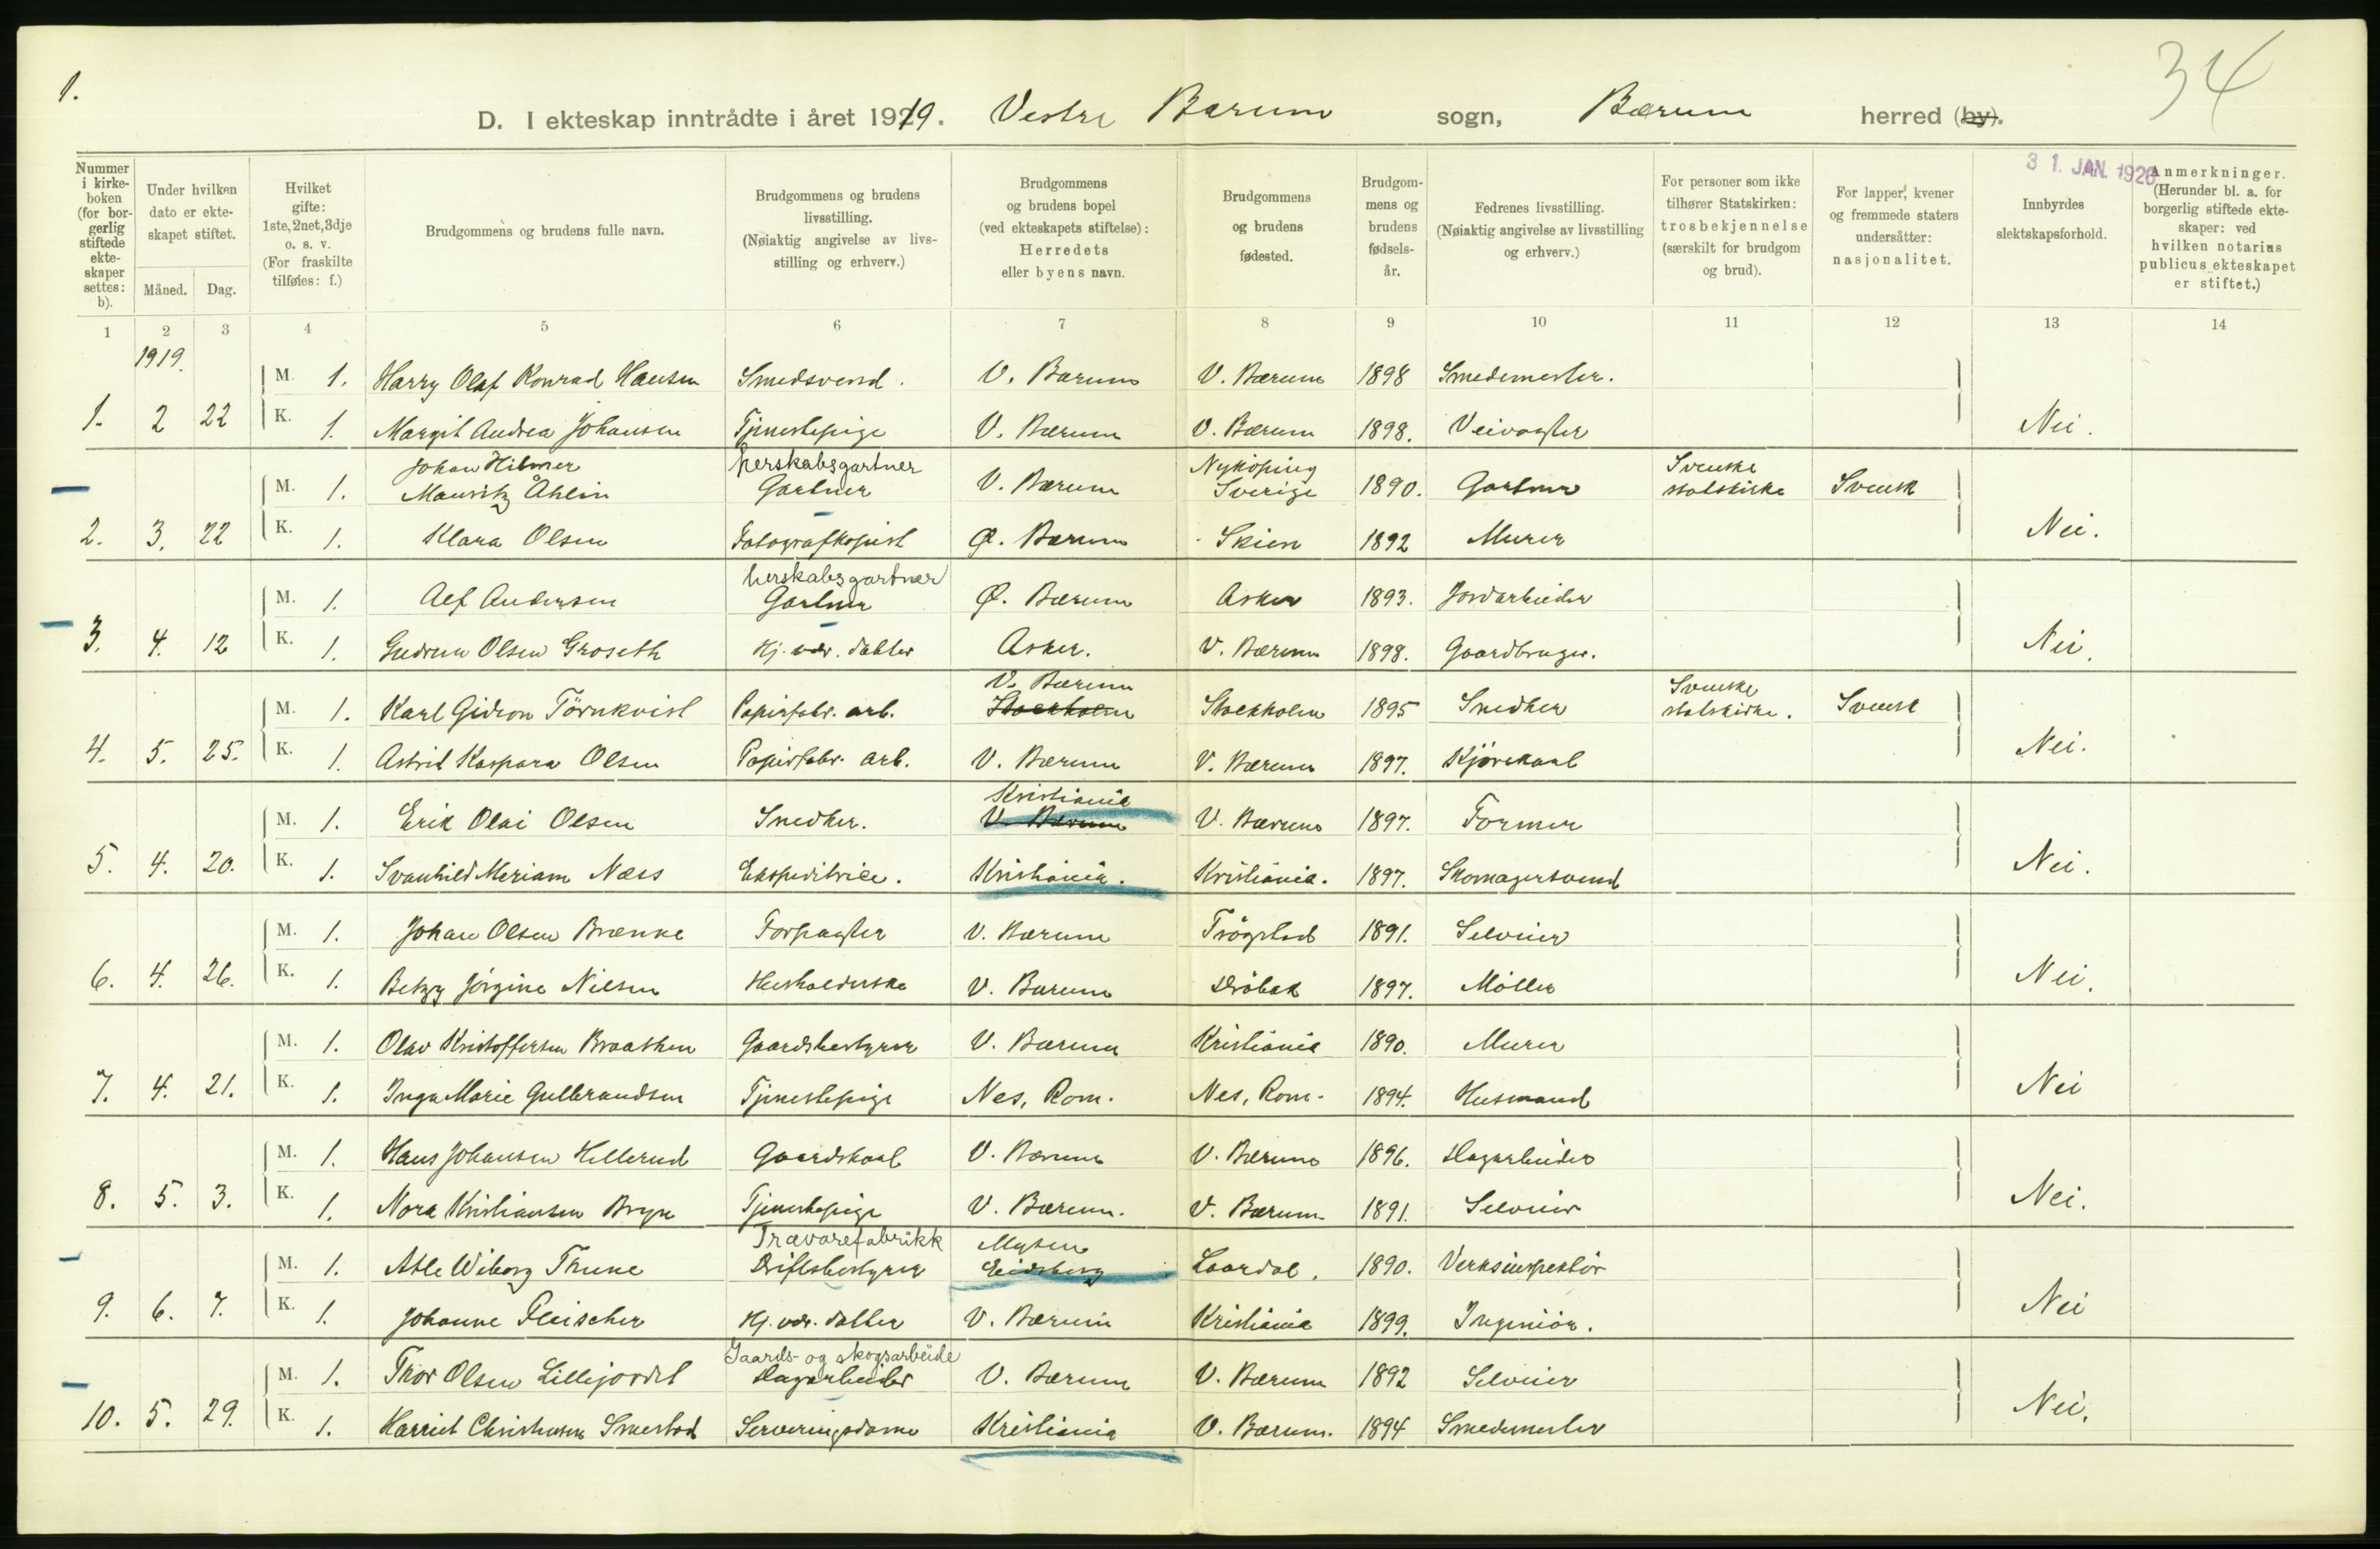 1.
34
D. I ekteskap inntrådte i året 1919. Vestre Bærum sogn, Bærum herred (by).
31. JAN. 1920
Nummer i kirke-boken (for bor-gerlig stiftede ekte-skaper settes: b).
Under hvilken dato er ekte-skapet stiftet.
Måned. Dag.
Hvilket gifte: 1ste, 2net, 3dje o. s. v. (For fraskilte tilføies: f.)
Brudgommens og brudens fulle navn.
Brudgommens og brudens livsstilling. (Nøiaktig angivelse av livs-stilling og erhverv.)
Brudgommens og brudens bopel (ved ekteskapets stiftelse): Herredets eller byens navn.
Brudgommens og brudens fødested.
Brudgom-mens og brudens fødsels-år.
Fedrenes livsstilling. (Nøiaktig angivelse av livsstilling og erhverv.)
For personer som ikke tilhører Statskirken: trosbekjennelse (særskilt for brudgom og brud).
For lapper, kvener og fremmede staters undersåtter: nasjonalitet.
Innbyrdes slektskapsforhold.
Anmerkninger. (Herunder bl. a. for borgerlig stiftede ekte-skaper: ved hvilken notarius publicus ekteskapet er stiftet.)
1 2 3 4 5 6 7 8 9 10 11 12 13 14
1919.
M. 1. Harry Olaf Konrad Hansen Smedsvend. V. Bærum V. Bærum 1898 Smedemester.
1. 2 22 K. 1. Margit Andrea Johansen Tjenestepige V. Bærum V. Bærum 1898. Veivogter Nei.
Johan Hilmer herskabsgartner Nyköping Svenske
M. 1. Mauritz Åhlin Gartner V. Bærum Sverige 1890. Gartner statskirke Svensk
2. 3. 22 K. 1. Klara Olsen Fotografkopist Ø. Bærum Skien 1892 Murer Nei.
herskabsgartner
M. 1. Alf Andersen Gartner Ø. Bærum Asker 1893. Jordarbeider
3. 4. 12 K. 1. Gudrun Olsen Groseth Hj. vær. datter Asker. V. Bærum 1898. Gaardbruger. Nei.
V. Bærum Svenske
M. 1. Karl Gideon Törnkvist Papirfabr. arb. Stockholm Stockholm 1895 Snedker statskirke. Svensk
4. 5. 25. K. 1. Astrid Kaspara Olsen Papirfabr. arb. V. Bærum V. Bærum 1897. Kjörekarl Nei.
Kristiania
M. 1. Erik Olai Olsen Snedker. V. Bærum V. Bærum 1897. Former
5. 4. 20. K. 1. Svanhild Meriam Næss Ekspeditrice. Kristiania. Kristiania. 1897. Skomagersvend Nei.
M. 1. Johan Olsen Brænne Forpagter V. Bærum Trögstad 1891. Selveier
6. 4. 26. K. 1. Betzy Jörgine Nilsen Husholderske V. Bærum Dröbak 1897. Möller Nei.
M. 1. Olav Kristoffersen Braathen Gaardsbestyrer V. Bærum Kristiania 1890. Murer
7. 4. 21. K. 1. Inga Marie Gulbrandsen Tjenestepige Nes, Rom. Nes, Rom. 1894. Husmand Nei
M. 1. Hans Johansen Hellerud Gaardskarl V. Bærum V. Bærum 1896. Dagarbeider
8. 5. 3. K. 1. Nora Kristiansen Bryn Tjenestepige V. Bærum. V. Bærum 1891. Selveier Nei.
Trævarefabrikk Mysen
M. 1. Atle Wiborg Thune Driftsbestyrer Eidsberg Laardal. 1890. Verksinspektör
9. 6. 7. K. 1. Johanne Fleischer Hj. vær. datter V. Bærum Kristiania 1899. Ingeniör. Nei
Gaards- og skogsarbeide
M. 1. Thor Olsen Lillejordet Dagarbeider V. Bærum V. Bærum 1892 Selveier
10. 5. 29. K. 1. Harriet Christensen Smestad Serveringsdame Kristiania V. Bærum. 1894 Smedemester Nei.